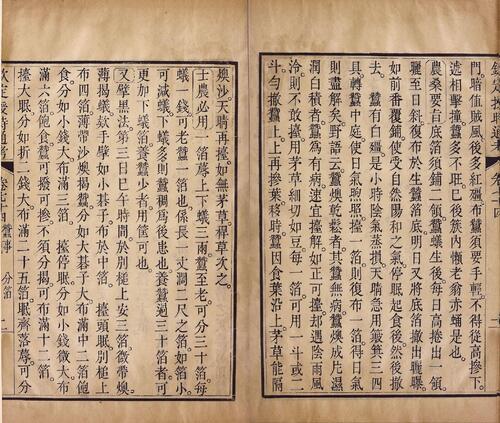 門暗值賊風後多紅殭布蠶須要手輕不得從高摻下。
遞相擊撞蠶多不旺巳後簇內懶老翁赤蛹是也。
農桑要旨底箔須鋪二領蠶蟻生後每日高捲出一領
曬至日斜復布於生蠶箔底明日又將底箔撤出曬曝
如前番覆鋪使受自然陽和之氣停眠起食後然後撤
去。 蠶有白殭是小時陰氣蒸損天晴急用簸箕三四
具轉中庭使日氣煦照擡一箔則復布一箔得日氣
則盡解矣野語云蠶燠乾鬆者其蠶無病蠶燠成片濕
潤白積者蠶為有病速宜擡解如正可擡却遇陰雨風
冷則不敢擡用茅草細切如豆每一箔可用一斗或二
斗勻撒蠶上上再摻葉移時蠶因食葉沿上茅草能隔
燠沙天晴再擡如無茅草稈草次之。
士農必用一箔蓐上下蟻三兩蠶至老可分三十箔每
蟻一錢可老蠶一箔也係長一丈濶二尺之箔如箔小
可減蟻下蟻多則蠶稠為後患也養蠶過三十箔者可
更加下蟻箔養蠶少者用筐可也。
又擘黑法第三日巳午時間於別槌上安三箔微帶燠
薄揭蟻欵手擘如小碁子布於中箔 擡頭眠別槌上
布四箔薄帶沙燠揭蠶分如大碁子大布滿中二箔飽
食分如小錢大布滿三箔 擡停眠分如小錢微大布
滿六箔飽食蠶可撥可摻不須分揭可布滿十二箔
擡大眠分如折二錢大布滿二十五箔眠齊落蓐可分
欽定授時通考 卷七十四 蠶事 分箔